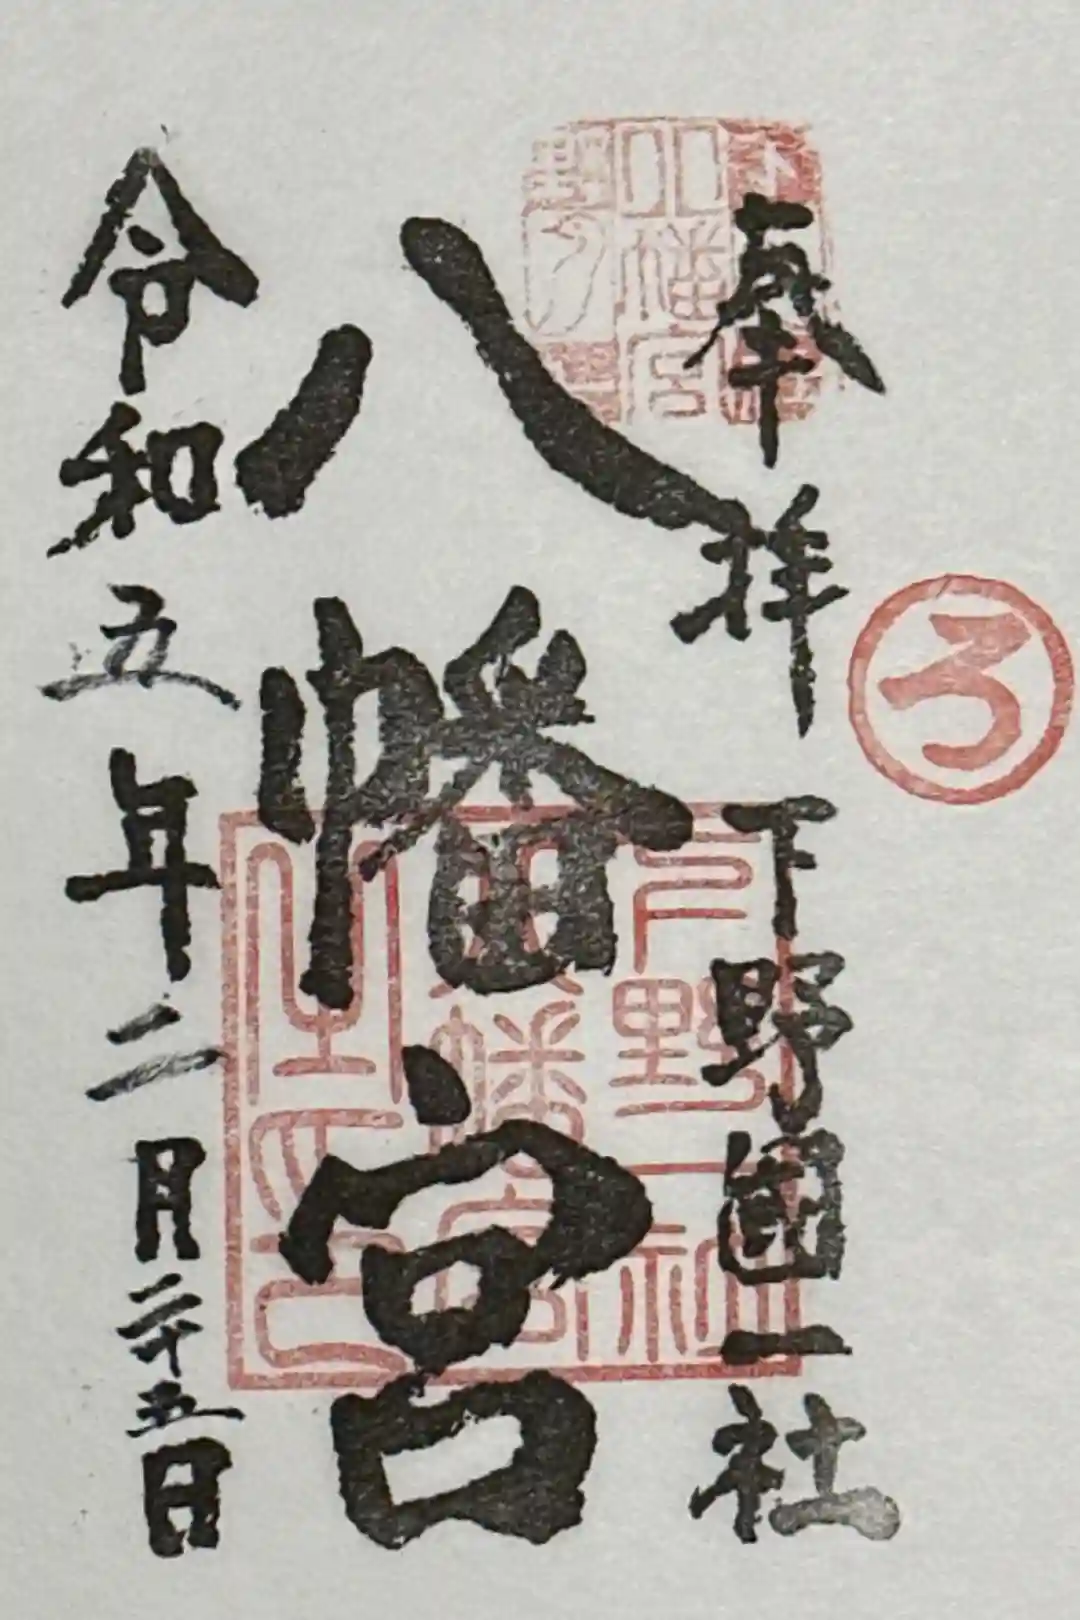 ろ
奉拝 下野國一社
八幡宮
令和五年二月二十五日
八幡宮
下野一社
八幡宮